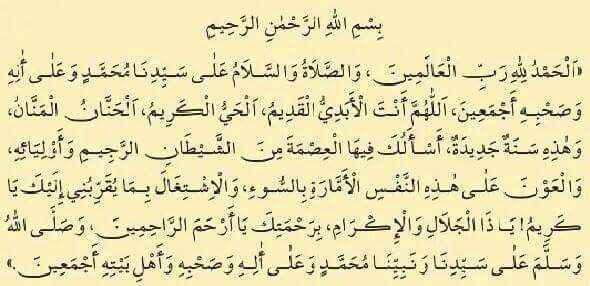 بِسْمِ اللهِ الرَّحْمٰنِ الرَّحِيمِ
«اَلْحَمْدُ لِلهِ رَبِّ الْعَالَمِينَ، وَالصَّلَاةُ وَالسَّلَامُ عَلٰى سَيِّدِنَا مُحَمَّدٍ وَعَلٰى أٰلِهِ
وَصَحْبِهِ أَجْمَعِينَ، اَللّٰهُمَّ أَنْتَ الْأَبَدِيُّ الْقَدِيمُ، اَلْحَيُّ الْكَرِيمُ، اَلْحَنَّانُ الْمَنَّانُ،
وَهٰذِهِ سَنَةٌ جَدِيدَةٌ، أَسْأَلُكَ فِيهَا الْعِصْمَةَ مِنَ الشَّيْطَانِ الرَّجِيمِ وَأَوْلِيَائِهِ،
وَالْعَوْنَ عَلٰى هٰذِهِ النَّفْسِ الْأَمَّارَةِ بِالسُّوءِ، وَالْاِشْتِغَالَ بِمَا يُقَرِّبُنِي إِلَيْكَ يَا
كَرِيمُ! يَا ذَا الْجَلَالِ وَالْإِكْرَامِ، بِرَحْمَتِكَ يَا أَرْحَمَ الرَّاحِمِينَ، وَصَلَّى اللهُ
وَسَلَّمَ عَلٰى سَيِّدِنَا وَنَبِيِّنَا مُحَمَّدٍ وَعَلٰى أٰلِهِ وَصَحْبِهِ وَأَهْلِ بَيْتِهِ أَجْمَعِينَ.»